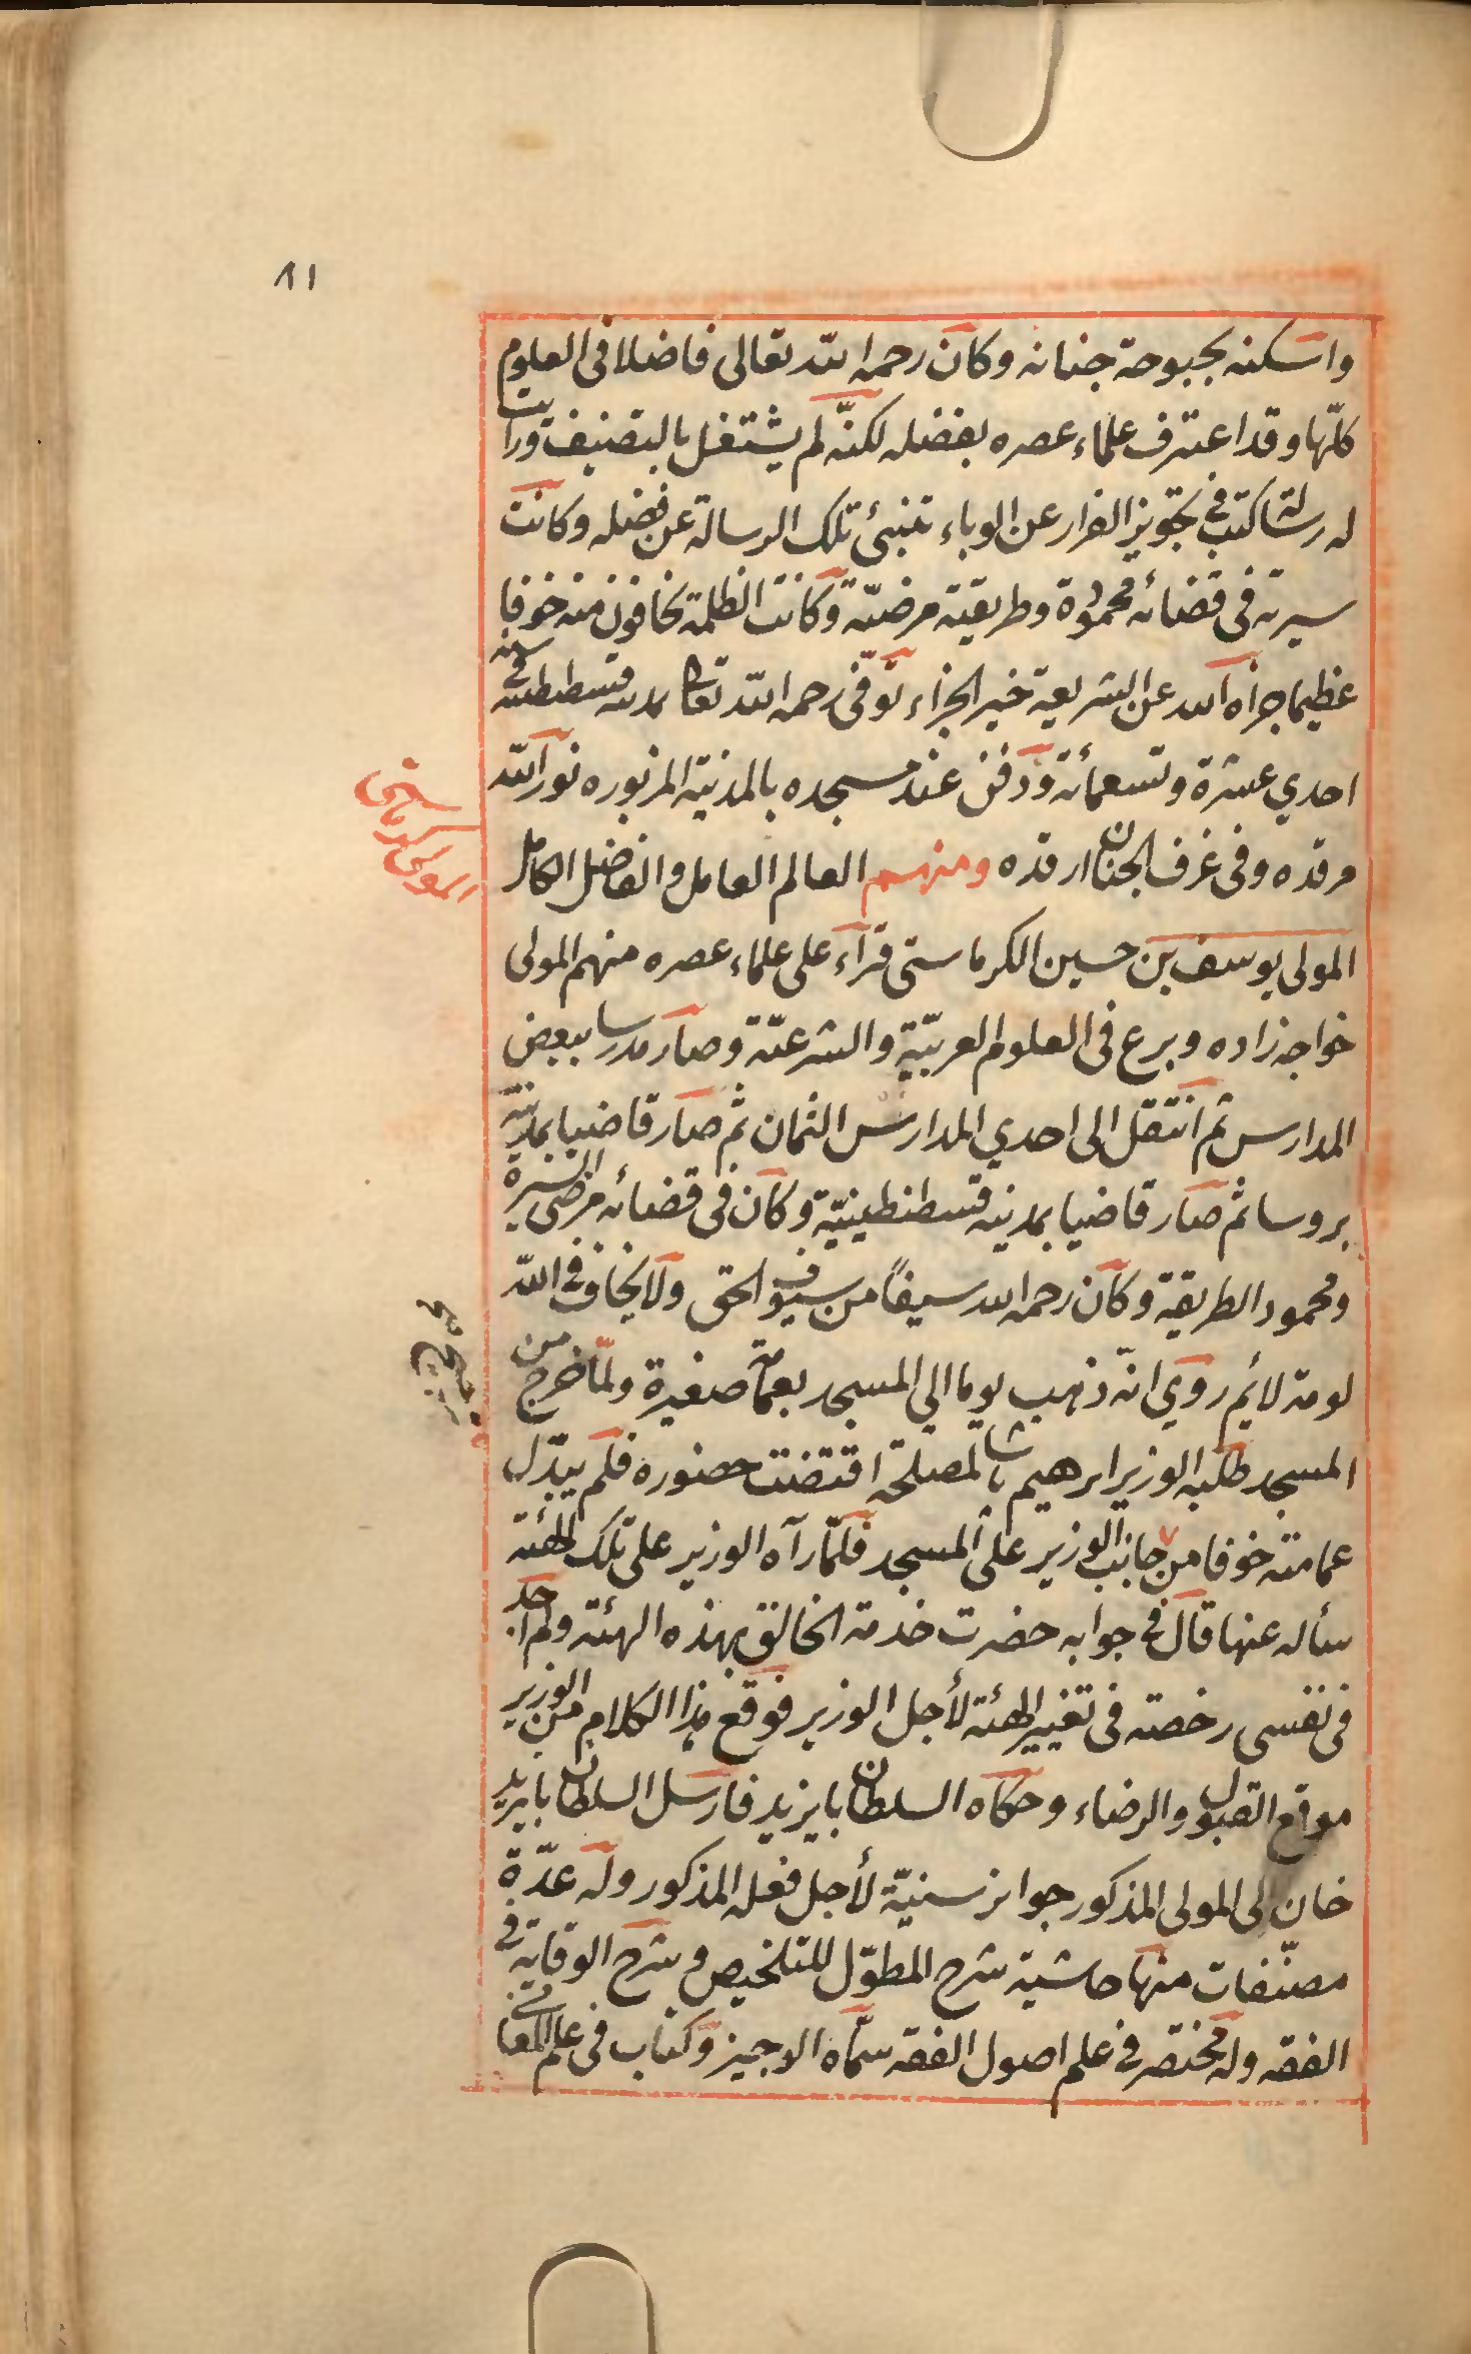 ٨١
واسكنه بحبوحة جنانه وكان رحمه الله تعالى فاضلا فى العلوم
كلّها وقد اعترف علماء عصره بفضله لكنّه لم يشتغل بالتصنيف ورايت
له رسالة كتب فى تجويز الفرار عن الوباء تنبئ تلك الرسالة عن فضله وكانت
سيرته فى قضائه محمودة وطريقته مرضيّة وكانت الظلمة تخافون منه خوفا
عظيما جزاه الله عن الشريعة خير الجزاء توفّى رحمه الله تعالى بمدينة قسطنطنية فى سنة
احدي عشرة وتسعمائة ودفن عند مسجده بالمدنية المزبوره نور الله
مرقده وفى غرف الجنان ارقده ومنهم العالم العامل والفاضل الكامل
المولى الكرماستى
المولى يوسف بن حسين الكرماستى قرآء على علماء عصره منهم المولى
خواجه زاده وبرع فى العلوم العربيّة والشرعيّة وصار مدرسا ببعض
المدارس ثم انتقل الى احدي المدارس الثمان ثم صار قاضيا بمدينة
بروسا ثم صار قاضيا بمدينه قسطنطينيّة وكان فى قضائه مرضى السيرة
ومحمود الطريقة وكان رحمه الله سيفاً من سيوف الحق ولا يخاف فى الله
لومة لائم روي انّه ذهب يوما الي المسجد بعمامة صغيرة ولمّا خرج من
المسجد طلبه الوزير ابرهيم پاشا لمصلحة اقتضت حضوره فلم يبدّل
عمامته خوفا من جانب الوزير على المسجد فلمّا رآه الوزير على تلك الهئة
سأله عنها قال فى جوابه حضرت خدمة الخالق بهذه الهئة ولم اجد
فى نفسى رخصة فى تغيير الهئة لأجل الوزير فوقع هذا الكلام من الوزير
موقع القبول والرضاء وحكاه السلطان بايزيد فارسل السلطان بايزيد
خان الى المولى المذكور جوايز سنيّة لأجل فعله المذكور وله عدّة
مصنّفات منها حاشية شرح المطوّل للتلخيص وشرح الوقاية فى
الفقه وله مختصر فى علم اصول الفقه سمّاه الوجيز وكتاب فى علم المعانى